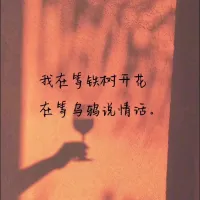 我在等铁树开花
在等乌鸦说情话.